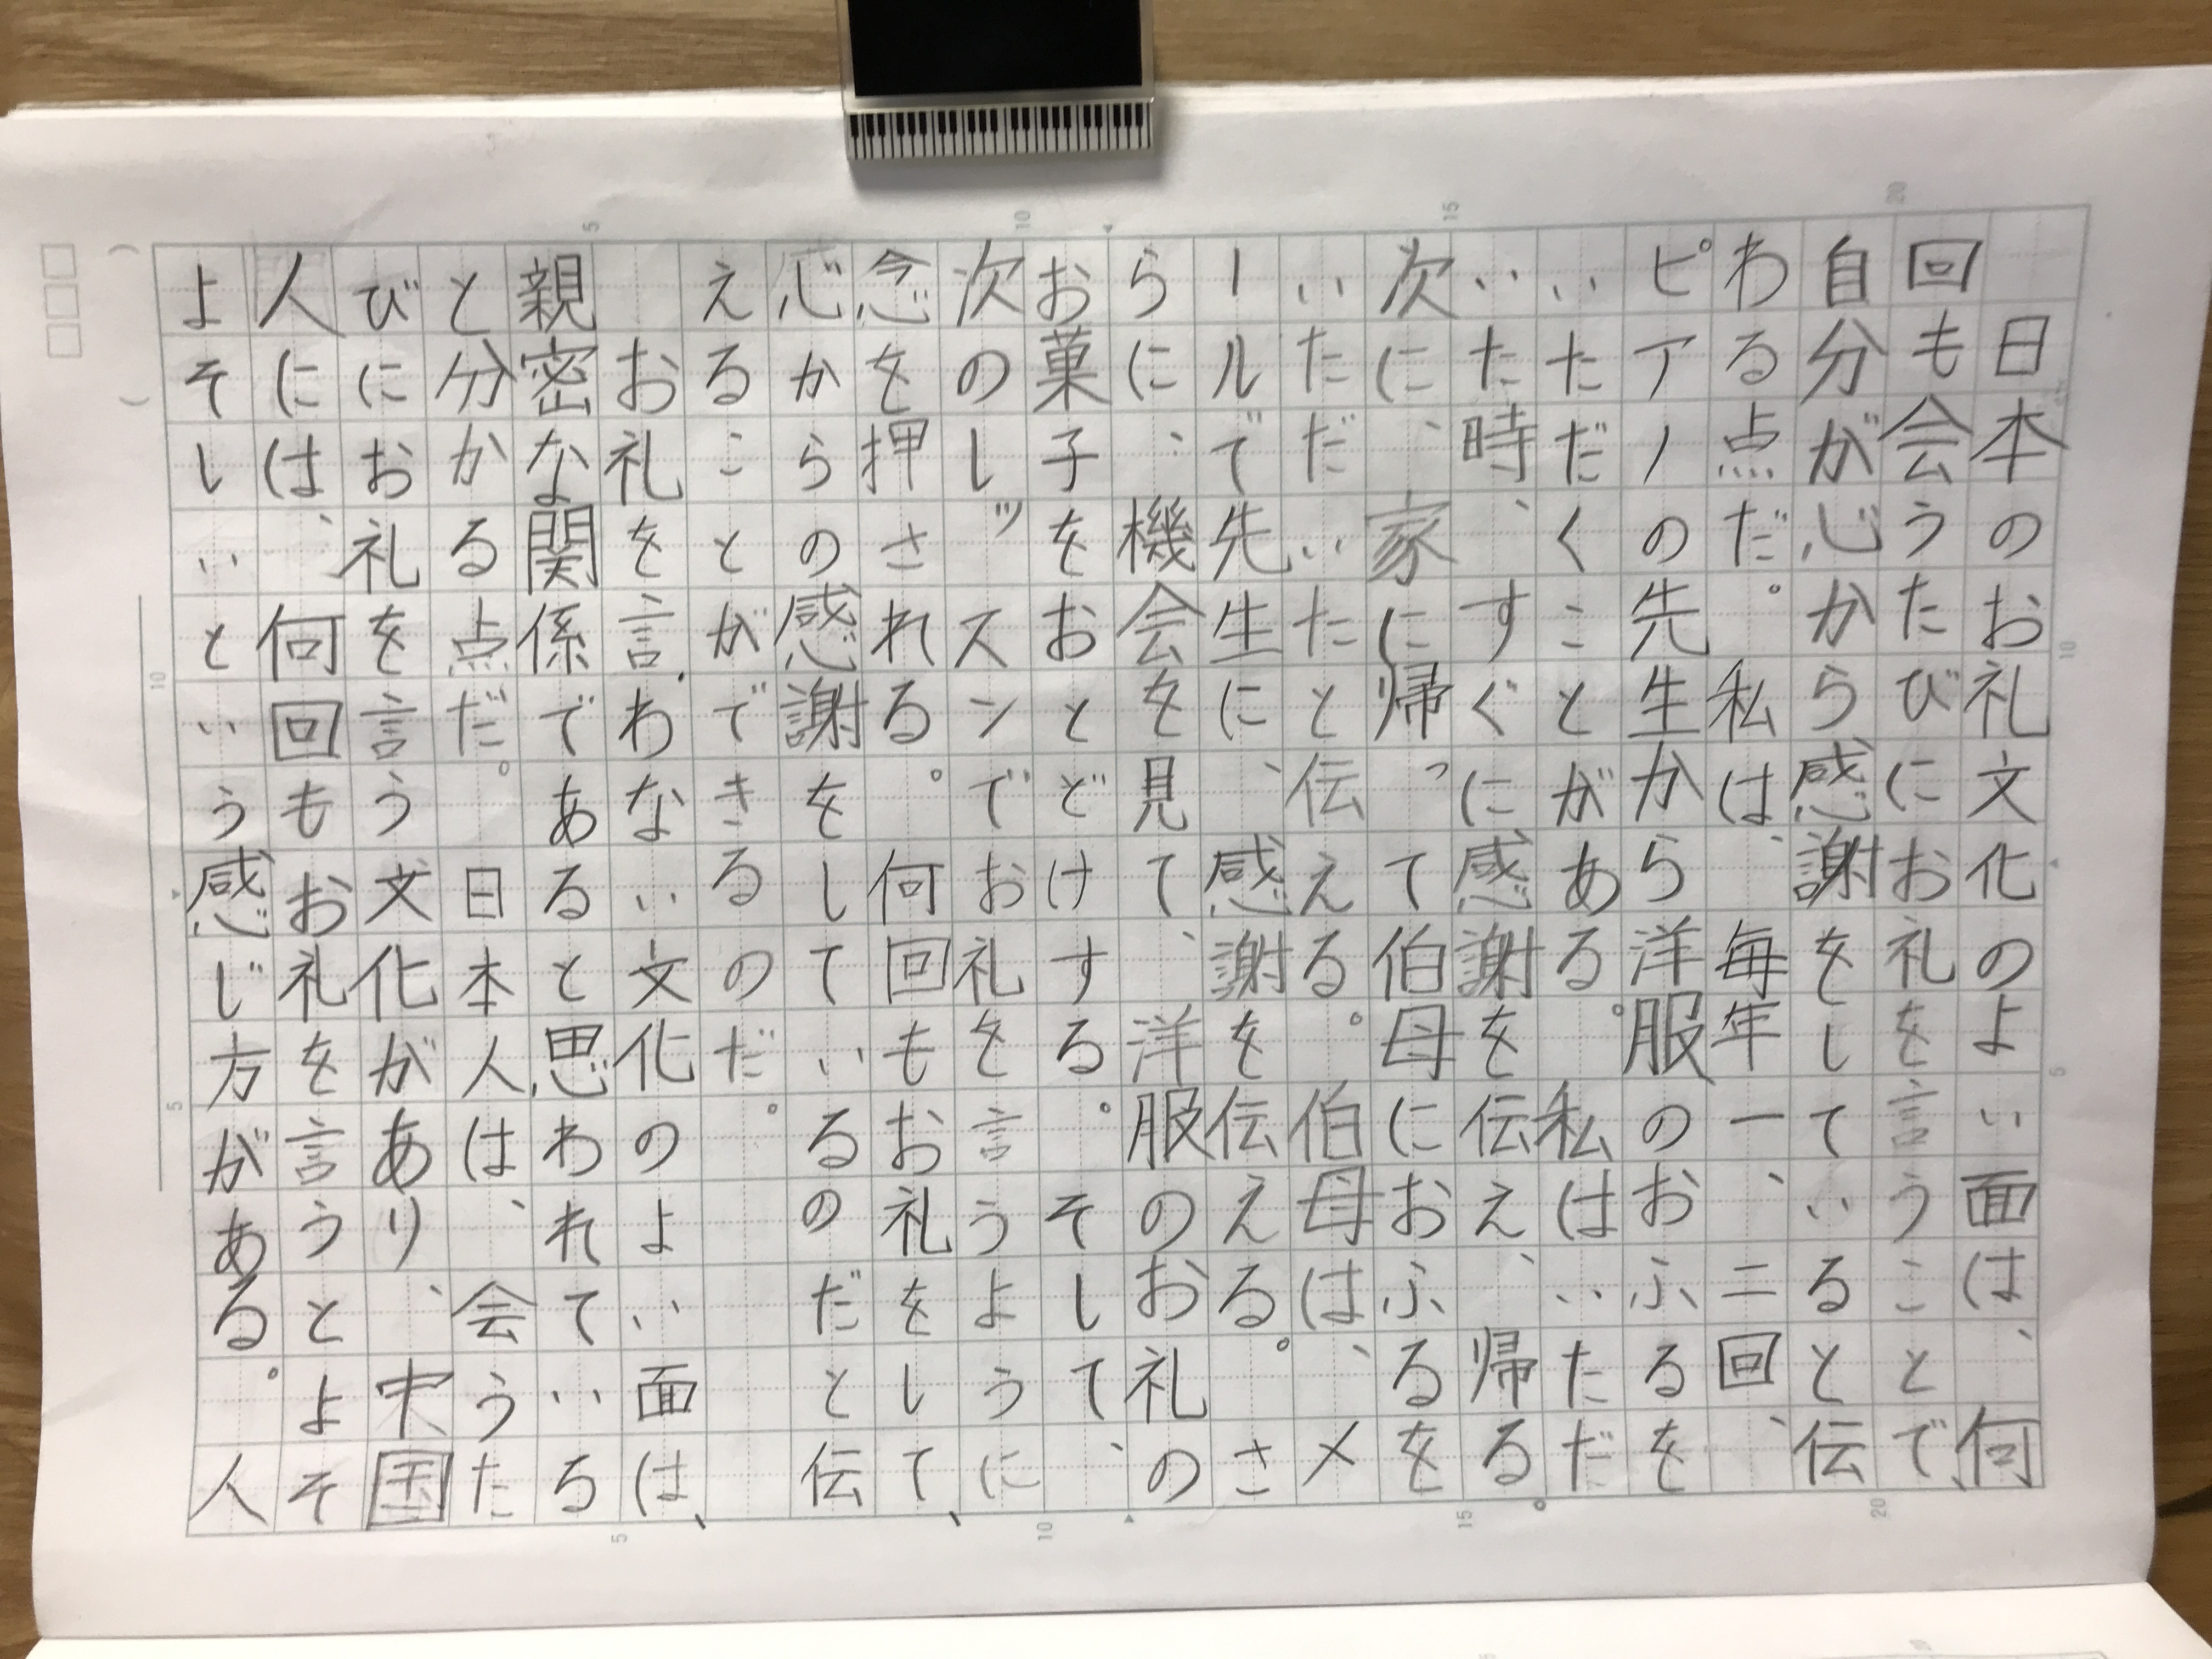 日本のお礼文化のよい面は、何
回も会うたびにお礼を言うことで、
自分が心から感謝をしていると伝
わる点だ。私は、毎年一、二回、
ピアノの先生から洋服のおふるを
いただくことがある。私はいただ
いた時、すぐに感謝を伝え、帰る。
次に、家に帰って伯母におふるを
いただいたと伝える。伯母は、メ
ールで先生に、感謝を伝える。さ
らに、機会を見て、洋服のお礼の
お菓子をおとどけする。そして、
次のレッスンでお礼を言うように、
念を押される。何回もお礼をして、
心からの感謝をしているのだと伝
えることができるのだ。
お礼を言わない文化のよい面は、
親密な関係であると思われている
と分かる点だ。日本人は、会うた
びにお礼を言う文化があり、中国
人には、何回もお礼を言うとよそ
よそしいという感じ方がある。人